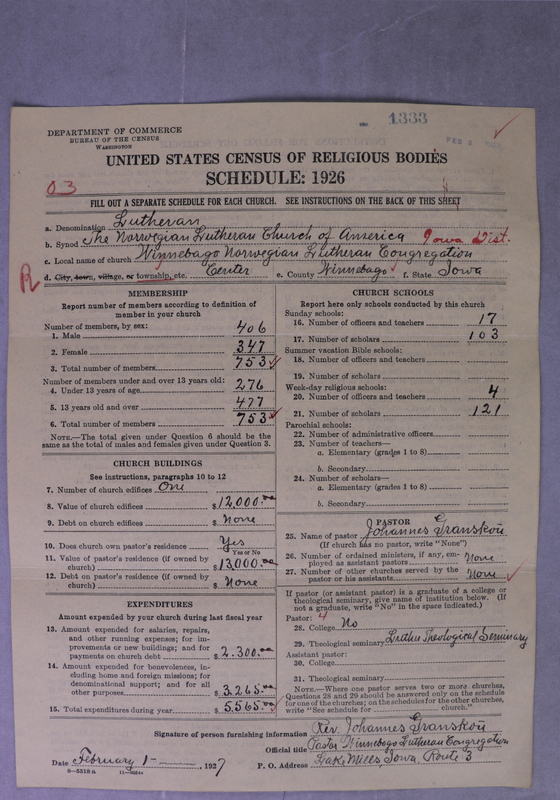 1333
DEPARTMENT OF COMMERCE
BUREAU OF THE CENSUS
WASHINGTON
FEB 3
UNITED STATES CENSUS OF RELIGIOUS BODIES
SCHEDULE: 1926
03
FILL OUT A SEPARATE SCHEDULE FOR EACH CHURCH. SEE INSTRUCTIONS ON THE BACK OF THIS SHEET
a. Denomination Lutheran
b. Synod The Norwegian Lutheran Church of America Iowa Dist.
c. Local name of church Winnebago Norwegian Lutheran Congregation
R
d. City, town, village, or township, etc. Center e. County Winnebago f. State Iowa
MEMBERSHIP
Report number of members according to definition of
member in your church
Number of members, by sex:
1. Male 406
2. Female 347
3. Total number of members 753
Number of members under and over 13 years old:
4. Under 13 years of age 276
5. 13 years old and over 477
6. Total number of members 753
NOTE.—The total given under Question 6 should be the
same as the total of males and females given under Question 3.
CHURCH BUILDINGS
See instructions, paragraphs 10 to 12
7. Number of church edifices One
8. Value of church edifices $12,000.00
9. Debt on church edifices $ None
10. Does church own pastor's residence Yes
Yes or No
11. Value of pastor's residence (if owned by
church) $13,000.00
12. Debt on pastor's residence (if owned by
church) $ None
EXPENDITURES
Amount expended by your church during last fiscal year
13. Amount expended for salaries, repairs,
and other running expenses; for im-
provements or new buildings; and for
payments on church debt $ 2.300.00
14. Amount expended for benevolences, in-
cluding home and foreign missions; for
denominational support; and for all
other purposes $ 3.265.00
15. Total expenditures during year $ 5.565.00
CHURCH SCHOOLS
Report here only schools conducted by this church
Sunday schools:
16. Number of officers and teachers 17
17. Number of scholars 103
Summer vacation Bible schools:
18. Number of officers and teachers
19. Number of scholars
Week-day religious schools:
20. Number of officers and teachers 4
21. Number of scholars 121
Parochial schools:
22. Number of administrative officers
23. Number of teachers—
a. Elementary (grades 1 to 8)
b. Secondary
24. Number of scholars—
a. Elementary (grades 1 to 8)
b. Secondary
PASTOR
25. Name of pastor Johannes Granskou
(If church has no pastor, write "None")
26. Number of ordained ministers, if any, em-
ployed as assistant pastors None
27. Number of other churches served by the
pastor or his assistants None
If pastor (or assistant pastor) is a graduate of a college or
theological seminary, give name of institution below. (If
not a graduate, write "No" in the space indicated.)
Pastor: 4
28. College No
29. Theological seminary Luther Theological Seminary
Assistant pastor:
30. College
31. Theological seminary
NOTE.—Where one pastor serves two or more churches,
Questions 28 and 29 should be answered only on the schedule
for one of the churches; on the schedules for the other churches,
write "See schedule for church."
Signature of person furnishing information Rev. Johannes Granskou
Official title Pastor Winnebago Lutheran Congregation
Date February 1 - , 1927 P. O. Address Lake Mills, Iowa, Route 3